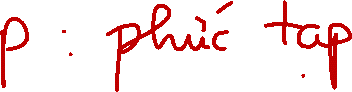 p : phức tạp